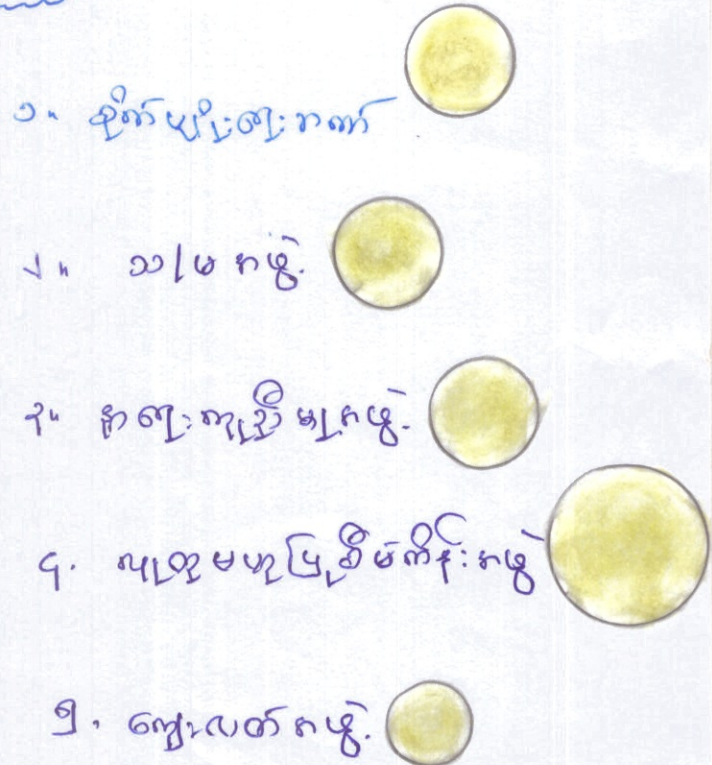 ၁။ စိုက်ပျိုးရေးကော်
၂။ သ/မ အဖွဲ့
၃။ နာရေးကူညီမှုအဖွဲ့
၄။ လူထုမဟုပြုစီမံကိန်းအဖွဲ့
၅. ကျေးလတ်အဖွဲ့